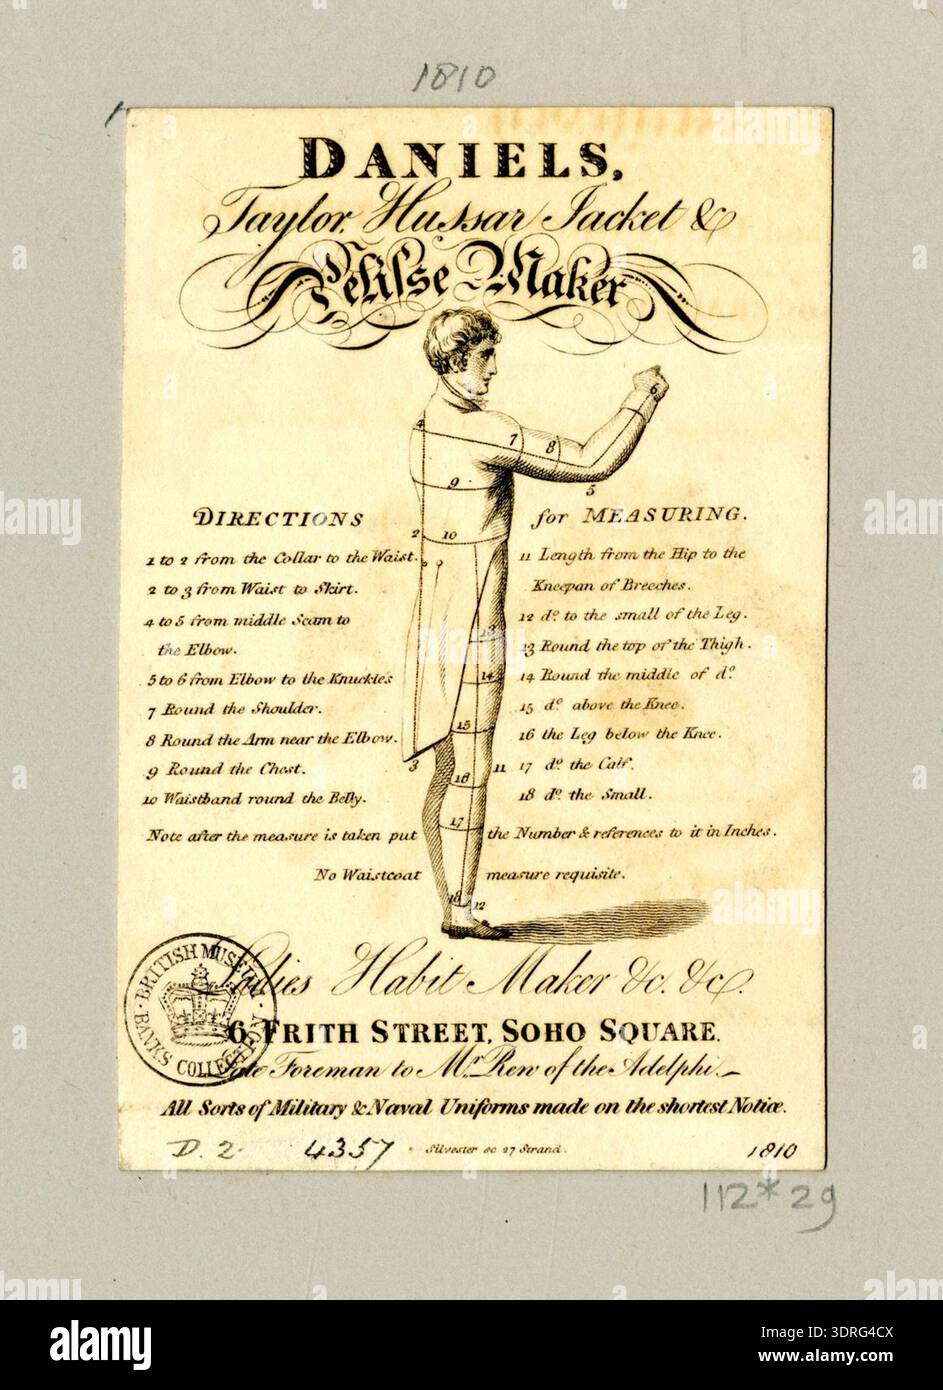 1810
DANIELS,
Taylor, Hussar Jacket &
Pelisse-Maker
4
7
8
6
9
5
2
10
13
14
15
3
11
16
17
18
12
DIRECTIONS
1 to 2 from the Collar to the Waist.
2 to 3 from Waist to Skirt.
4 to 5 from middle Seam to
the Elbow.
5 to 6 from Elbow to the Knuckles
7 Round the Shoulder.
8 Round the Arm near the Elbow.
9 Round the Chest.
10 Waistband round the Belly.
for MEASURING.
11 Length from the Hip to the
Kneepan of Breeches.
12 do. to the small of the Leg.
13 Round the top of the Thigh.
14 Round the middle of do.
15 do. above the Knee.
16 the Leg below the Knee.
17 do. the Calf.
18 do. the Small.
Note after the measure is taken put the Number & references to it in Inches.
No Waistcoat measure requisite.
Ladies Habit Maker &c. &c.
6, FRITH STREET, SOHO SQUARE.
Late Foreman to Mr. Rew of the Adelphi.
All Sorts of Military & Naval Uniforms made on the shortest Notice.
BRITISH MUSEUM
BANKS COLLECTION
D. 2. 4357 Silvester sc 27 Strand. 1810
112*29
alamy
Image ID: 3DRG4CX
www.alamy.com